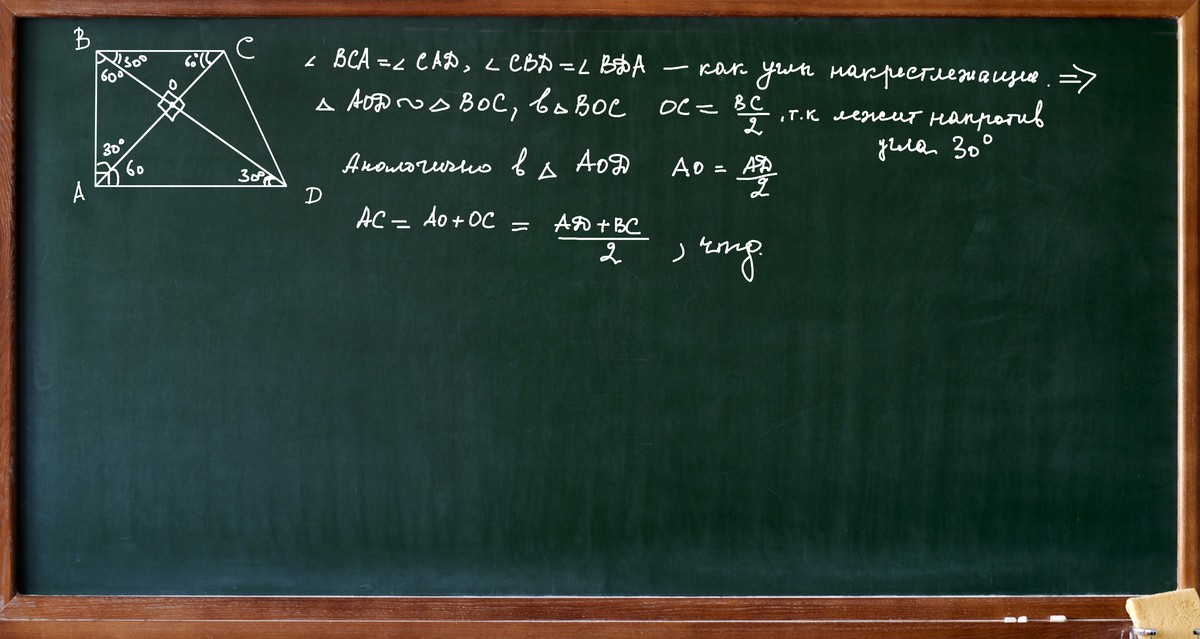 B 30° 60° C
60° O
30°
60 30°
A D
∠ BCA = ∠ CAD, ∠ CBD = ∠ BDA — как углы накрестлежащие. ⇒
△ AOD ~ △ BOC, в △ BOC OC = BC/2, т.к лежит напротив
угла 30°
Аналогично в △ AOD AO = AD/2
AC = AO + OC = (AD + BC)/2, чтд.